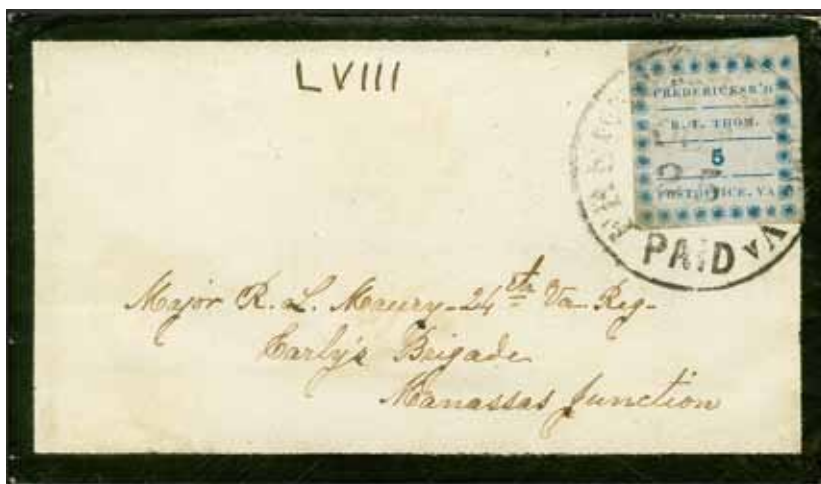 LVIII
FREDERICKSB'G
R. T. THOM.
5
POST OFFICE, VA
PAID
VA
Major R. L. Maury - 24th Va. Reg -
Early's Brigade
Manassas Junction